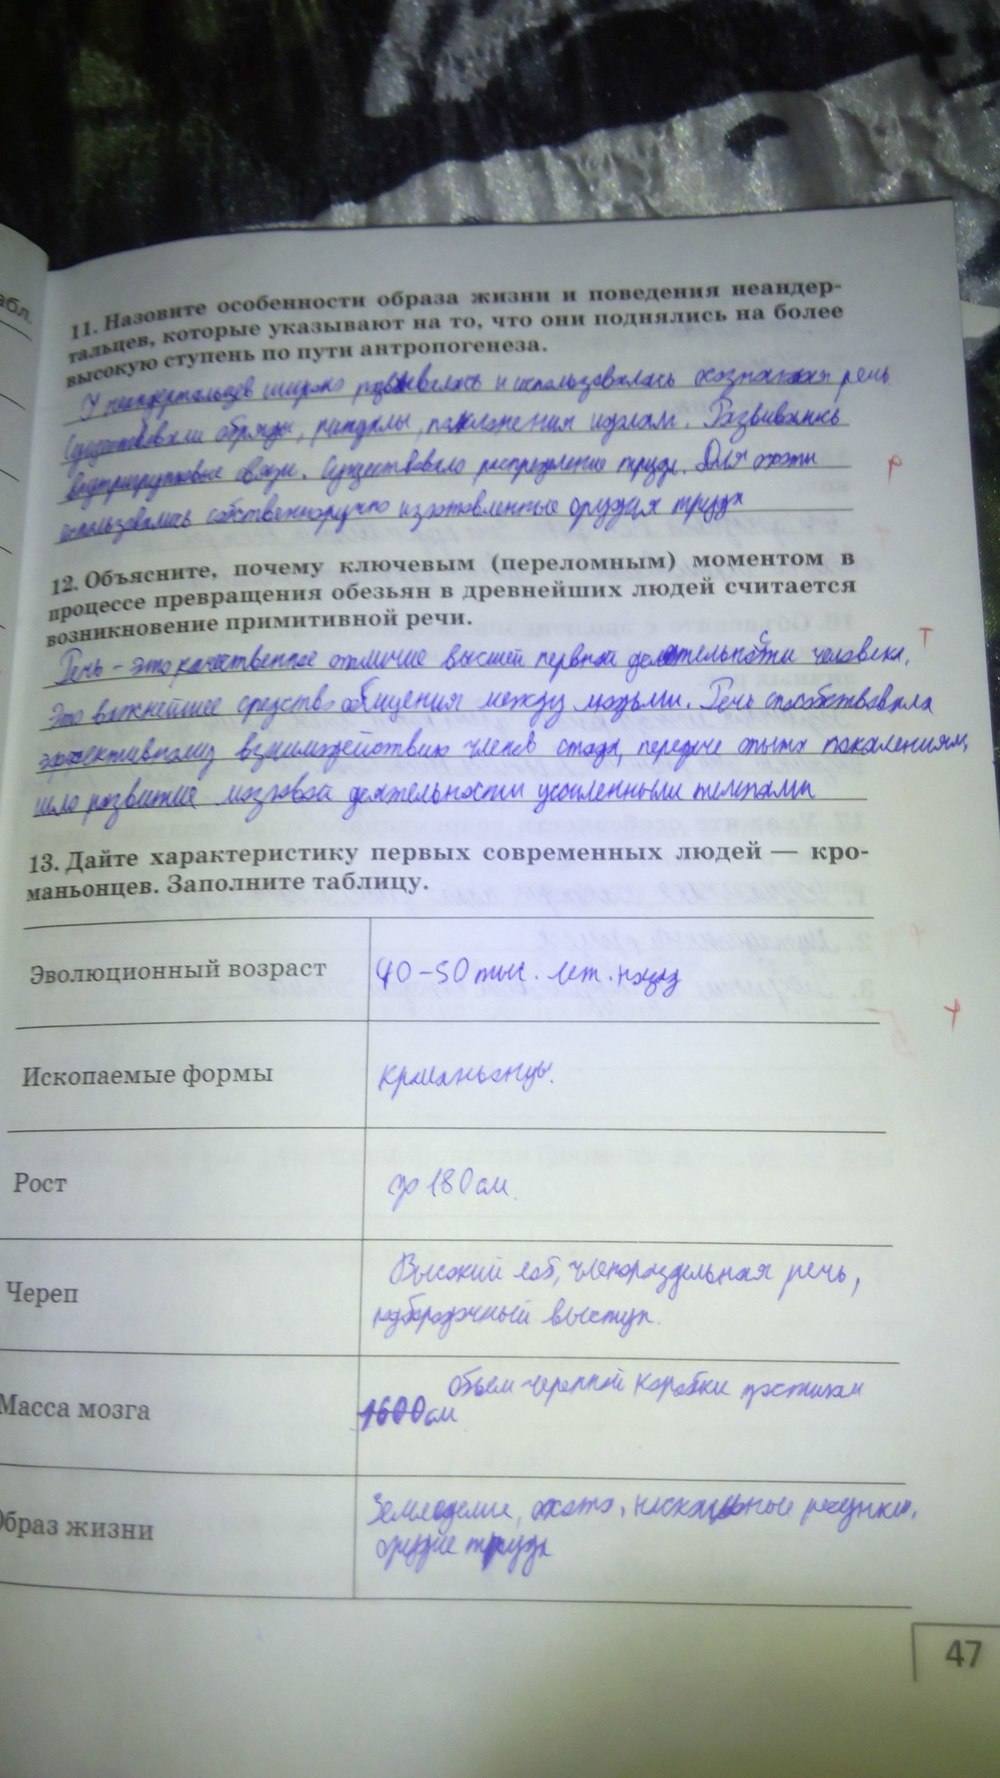 абл.
11. Назовите особенности образа жизни и поведения неандер-
тальцев, которые указывают на то, что они поднялись на более
высокую ступень по пути антропогенеза.
У неандертальцев широко развивалась и использовалась осознанная речь
Существовали обряды, ритуалы, поклонения идолам. Развивались
внутригрупповые связи. Существовало распределение труда. Для охоты
использовались собственноручно изготовленные орудия труда
12. Объясните, почему ключевым (переломным) моментом в
процессе превращения обезьян в древнейших людей считается
возникновение примитивной речи.
Речь - это качественное отличие высшей нервной деятельности человека,
это важнейшее средство общения между людьми. Речь способствовала
взаимодействию членов стада, передаче опыта поколениям,
шло развитие мозговой деятельности усиленными темпами
13. Дайте характеристику первых современных людей — кро-
маньонцев. Заполните таблицу.
Эволюционный возраст 40-50 тыс. лет. назад
Ископаемые формы кроманьонцы.
Рост до 180 см.
Череп Высокий лоб, членораздельная речь,
подбородочный выступ.
Масса мозга объем черепной коробки достигал
1600 см
Образ жизни Земледелие, охота, наскальные рисунки,
орудие труда
47